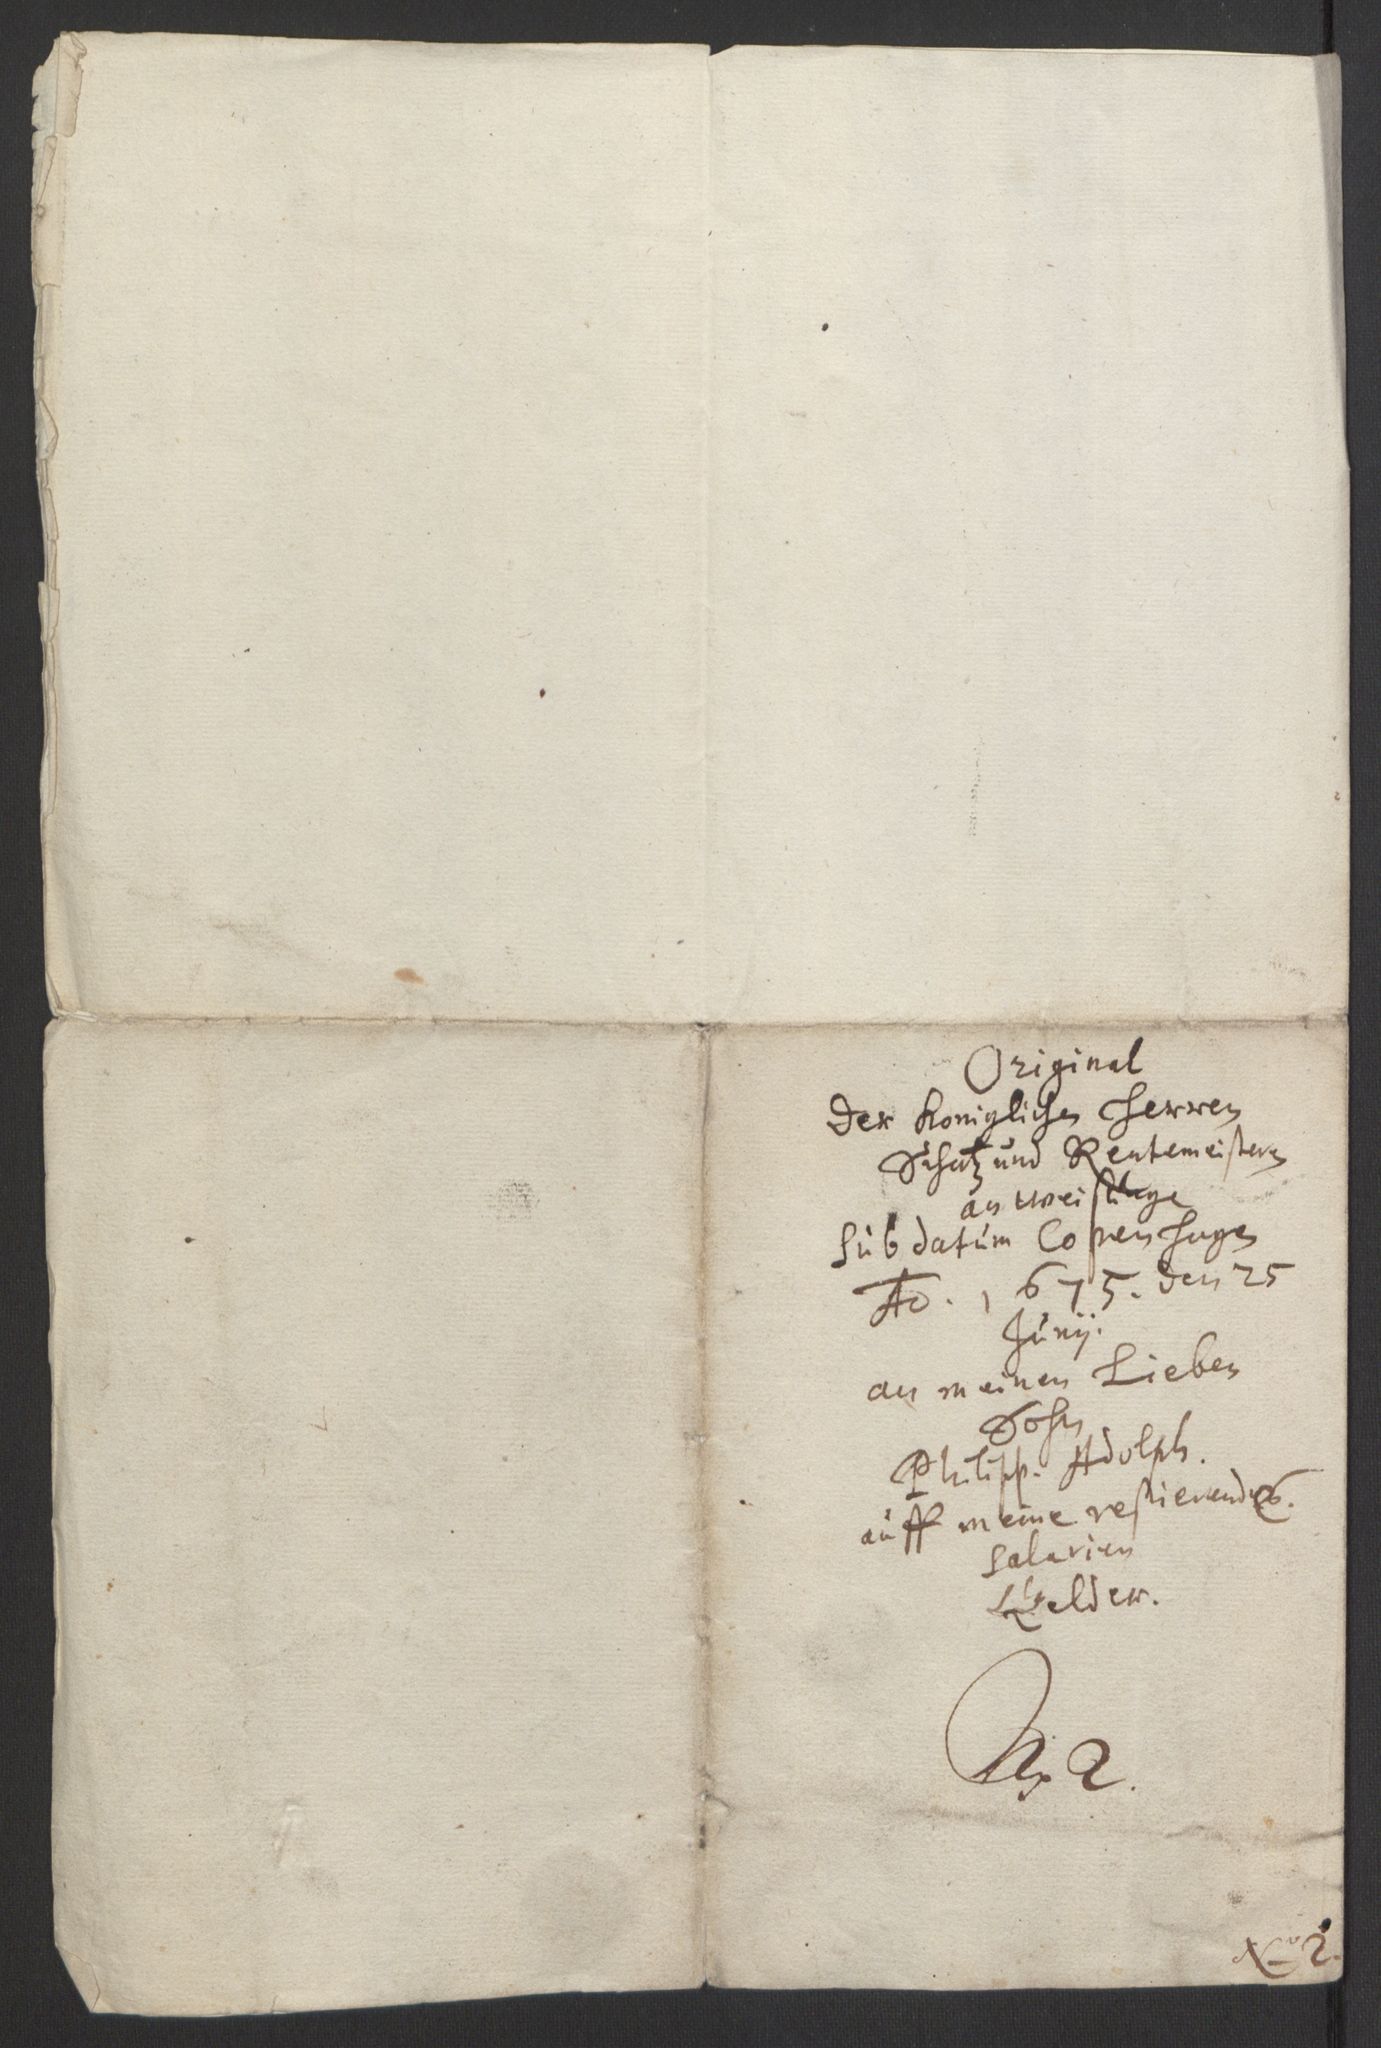 Original
der königlichen Herren
Schatz und Rentemeistern
anweisunge
sub datum Copenhagen
Ao. 1675. den 25
Junij.
an meinen Lieben
Sohn
Philipp. Adolph.
auff meine restierende
salarien
Gelder.
No 2.
No 2.